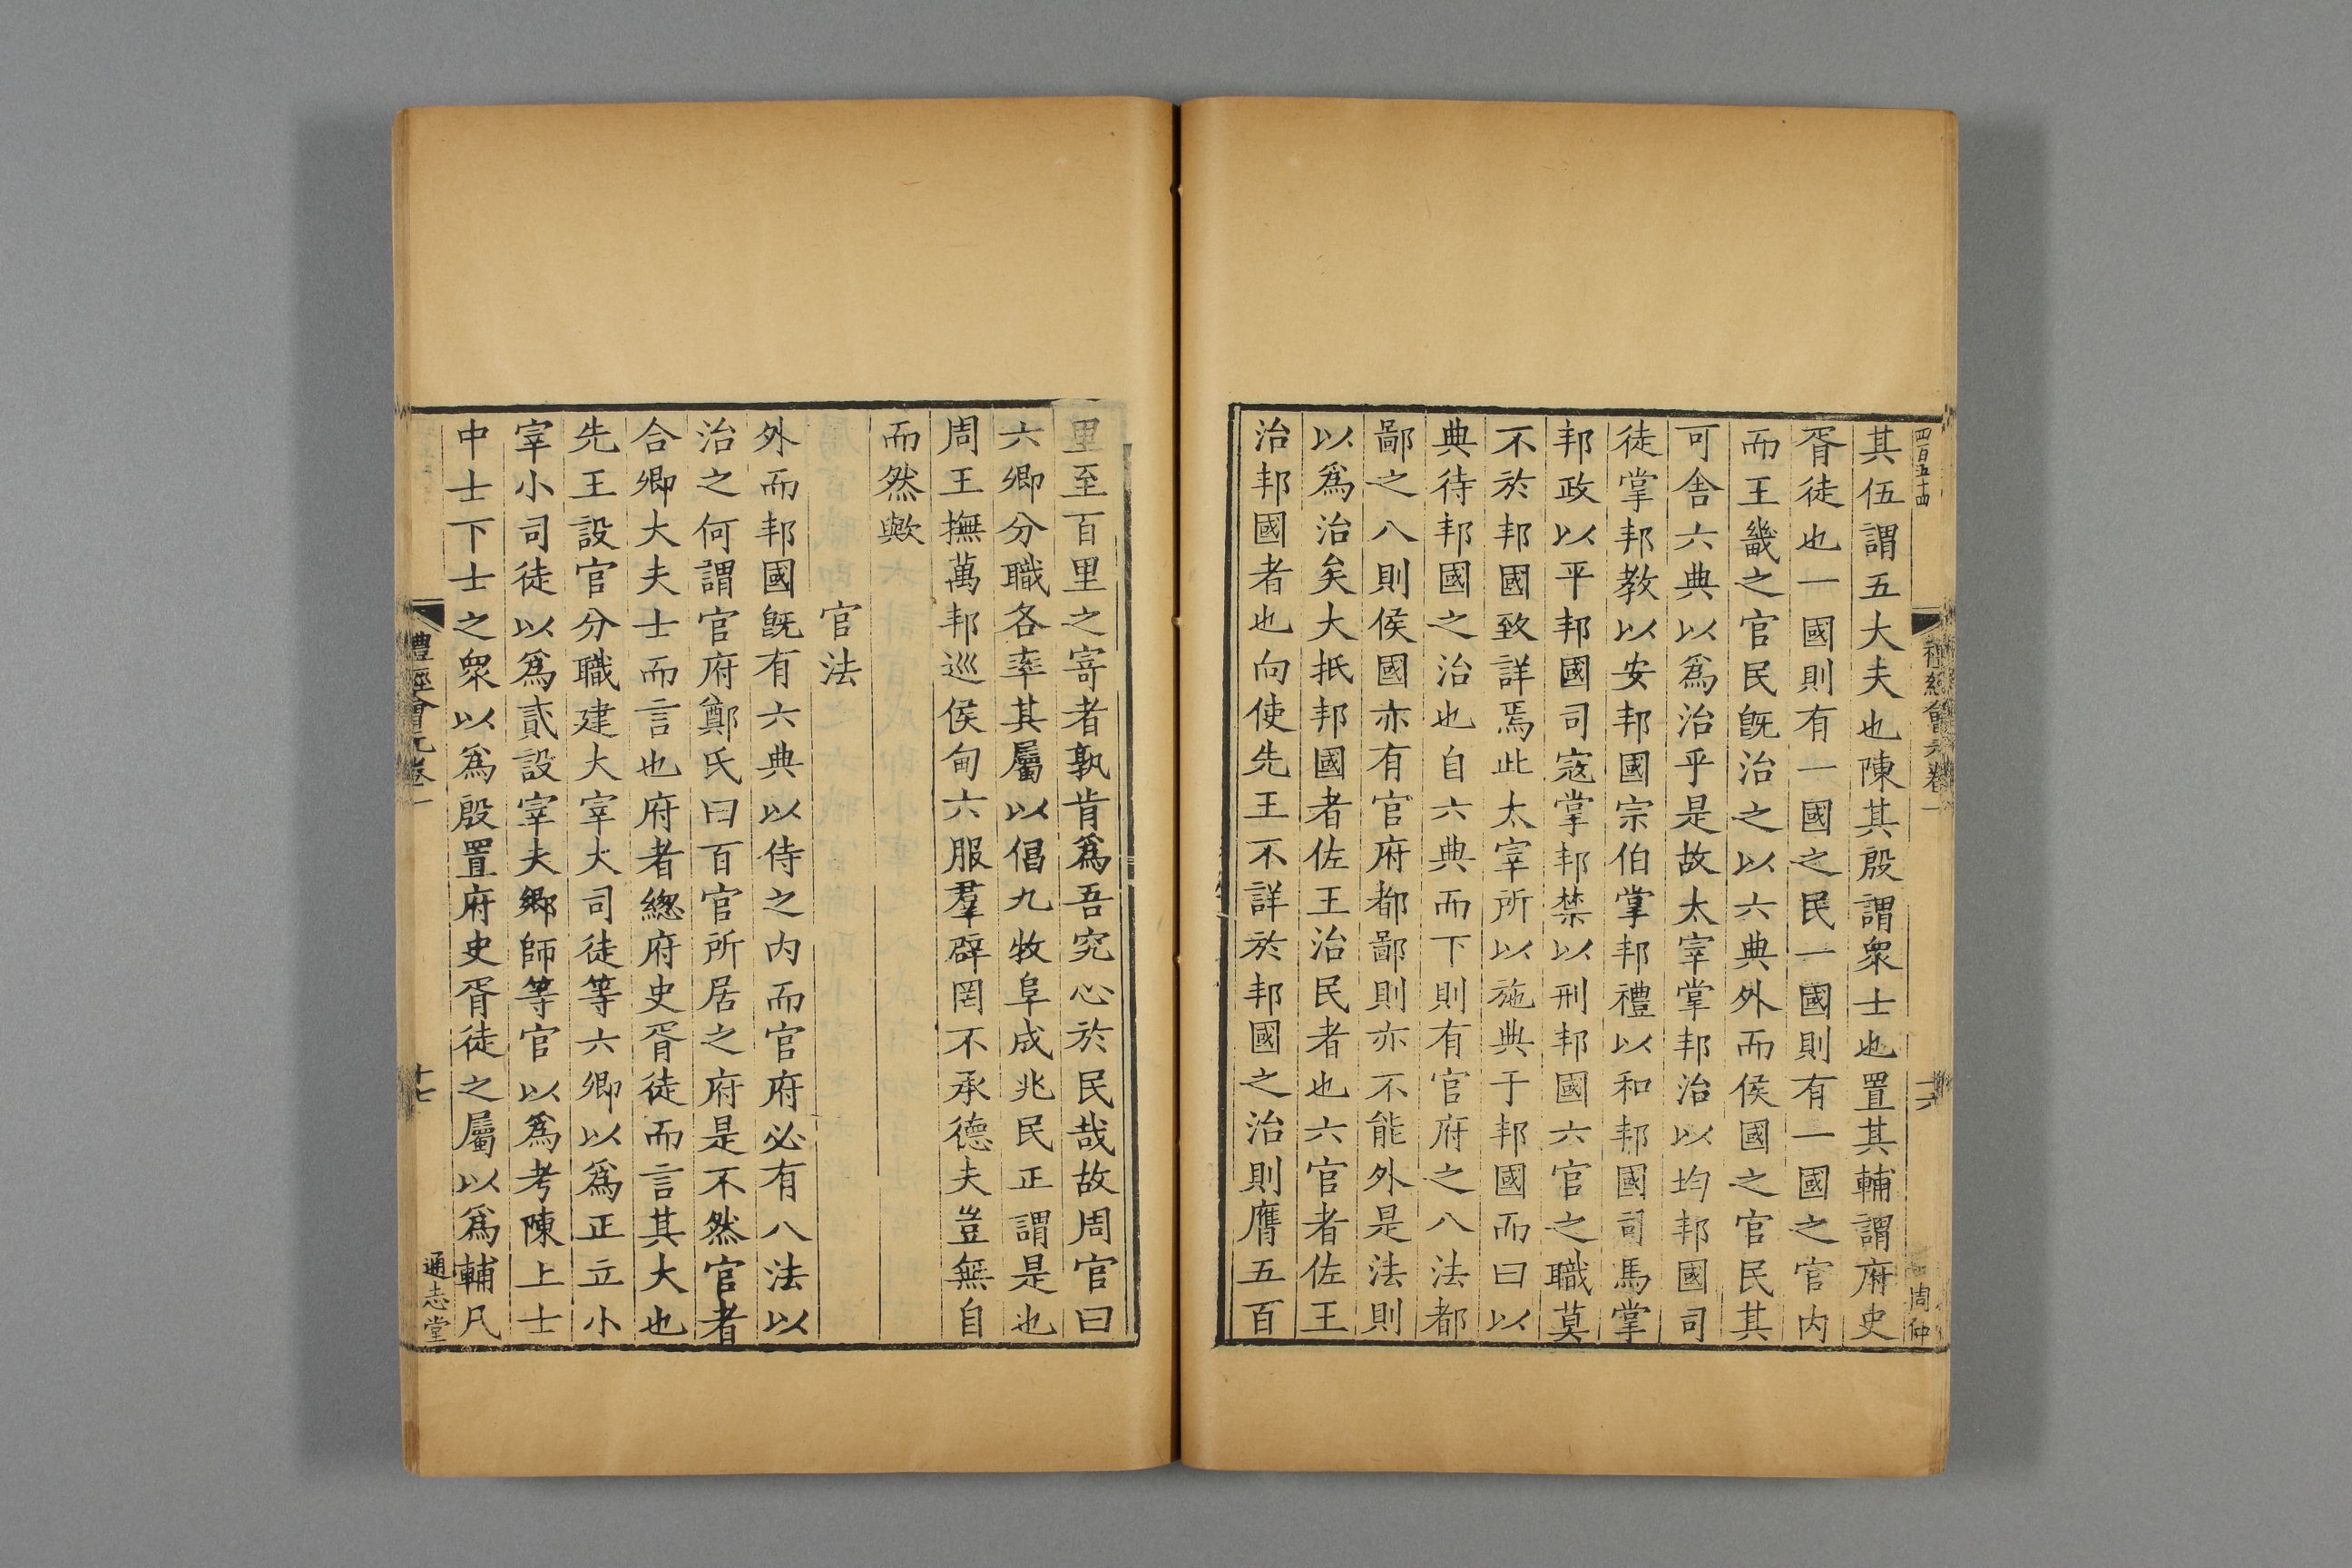 四百五十四
其伍謂五大夫也陳其殷謂衆士也置其輔謂府史
胥徒也一國則有一國之民一國則有一國之官内
而王畿之官民旣治之以六典外而侯國之官民其
可舍六典以爲治乎是故太宰掌邦治以均邦國司
徒掌邦教以安邦國宗伯掌邦禮以和邦國司馬掌
邦政以平邦國司寇掌邦禁以刑邦國六官之職莫
不於邦國致詳焉此太宰所以施典于邦國而曰以
典待邦國之治也自六典而下則有官府之八法都
鄙之八則侯國亦有官府都鄙則亦不能外是法則
以爲治矣大抵邦國者佐王治民者也六官者佐王
治邦國者也向使先王不詳於邦國之治則膺五百
禮經會元卷一
十六
周仲
里至百里之寄者孰肯爲吾究心於民哉故周官曰
六卿分職各率其屬以倡九牧阜成兆民正謂是也
周王撫萬邦巡侯甸六服羣辟罔不承德夫豈無自
而然歟
官法
外而邦國旣有六典以侍之内而官府必有八法以
治之何謂官府鄭氏曰百官所居之府是不然官者
合卿大夫士而言也府者緫府史胥徒而言其大也
先王設官分職建大宰大司徒等六卿以爲正立小
宰小司徒以爲貳設宰夫鄉師等官以爲考陳上士
中士下士之衆以爲殷置府史胥徒之屬以爲輔凡
禮經會元卷一
十七
通志堂